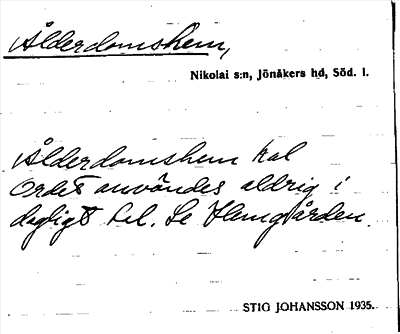 Ålderdomshem,
Nikolai s:n, Jönåkers hd, Söd. l.
Ålderdomshem kal
Ordet användes aldrig i
dagligt tal. Se Hemgården.
STIG JOHANSSON 1935.